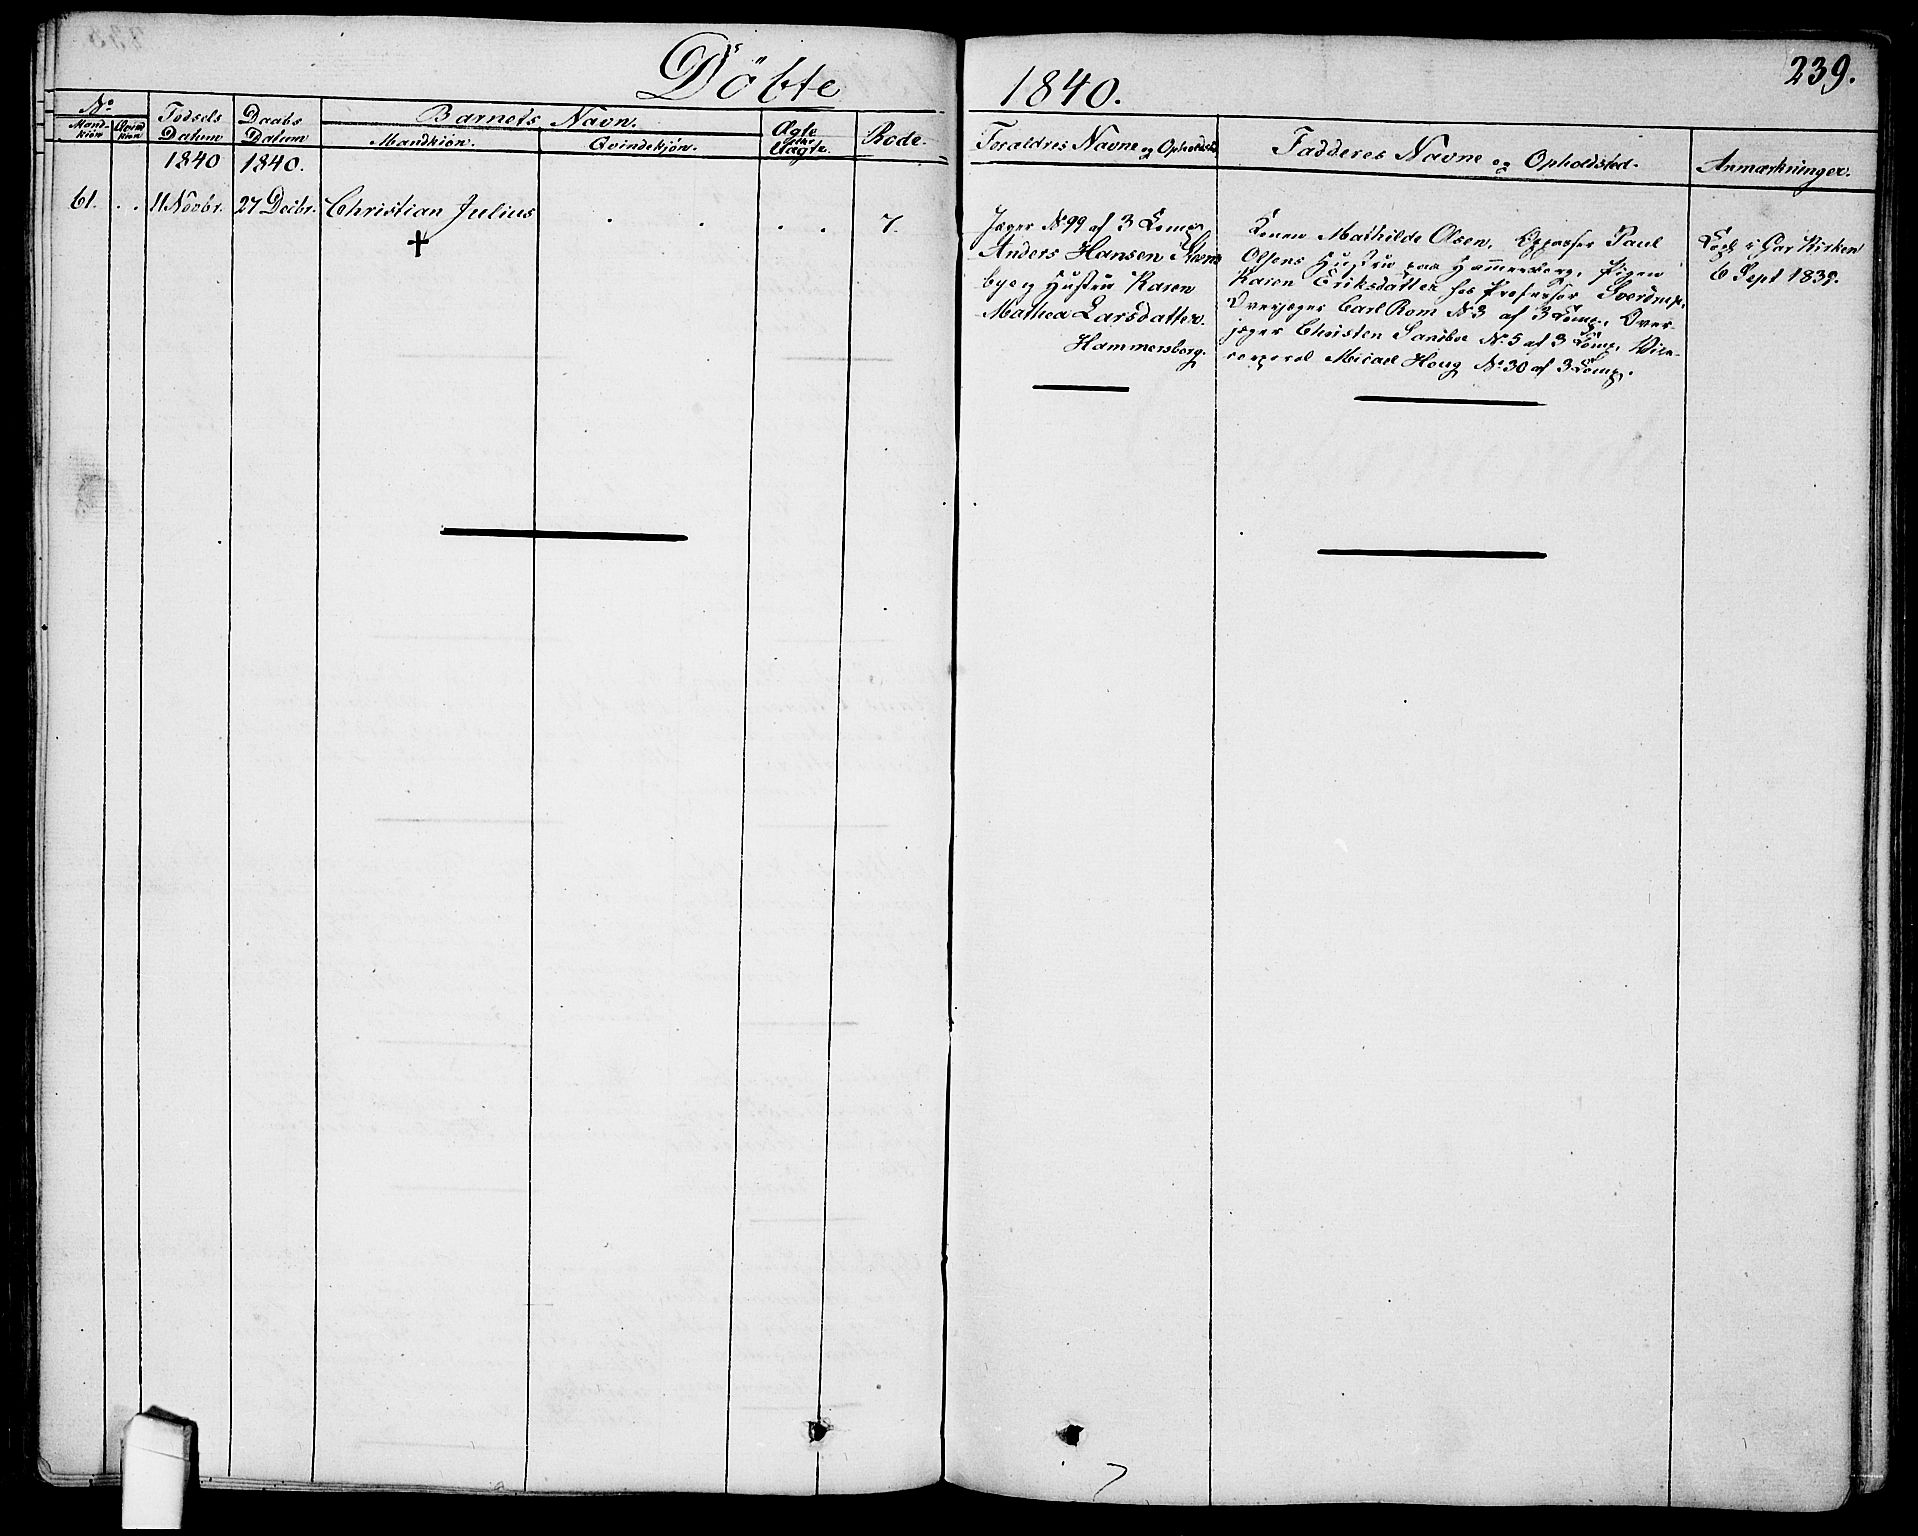 Döbte
1840.
239.
No
Mandkiön
Qvindkiön
Födsels Datum
Daabs Datum
Barnets Navn.
Mandkiön.
Qvindekjön.
Ægte eller Uægte.
Rode.
Foraldres Navne og Opholdsted
Fadderes Navne og Opholdsted.
Anmærkninger.
1840
1840.
61.
11 Novbr.
27 Decbr.
Christian Julius
7.
Jæger No 99 af 3 Comp.
Anders Hansen
bye og Hustru Karen
Mathea Larsdatter.
Hammersborg.
Konen Mathilde Olsen, Oppasser Paul
Olsens Hustru paa Hammersborg, Pigen
Karen Eriksdatter hos Professor
Overjæger Carl Rom No 3 af 3 Comp. Over-
jæger Christen No 5 af 3 Comp. Vice-
corporal Micael Houg No 30 af 3 Comp.
i Gar Kirken
6 Sept 1839.